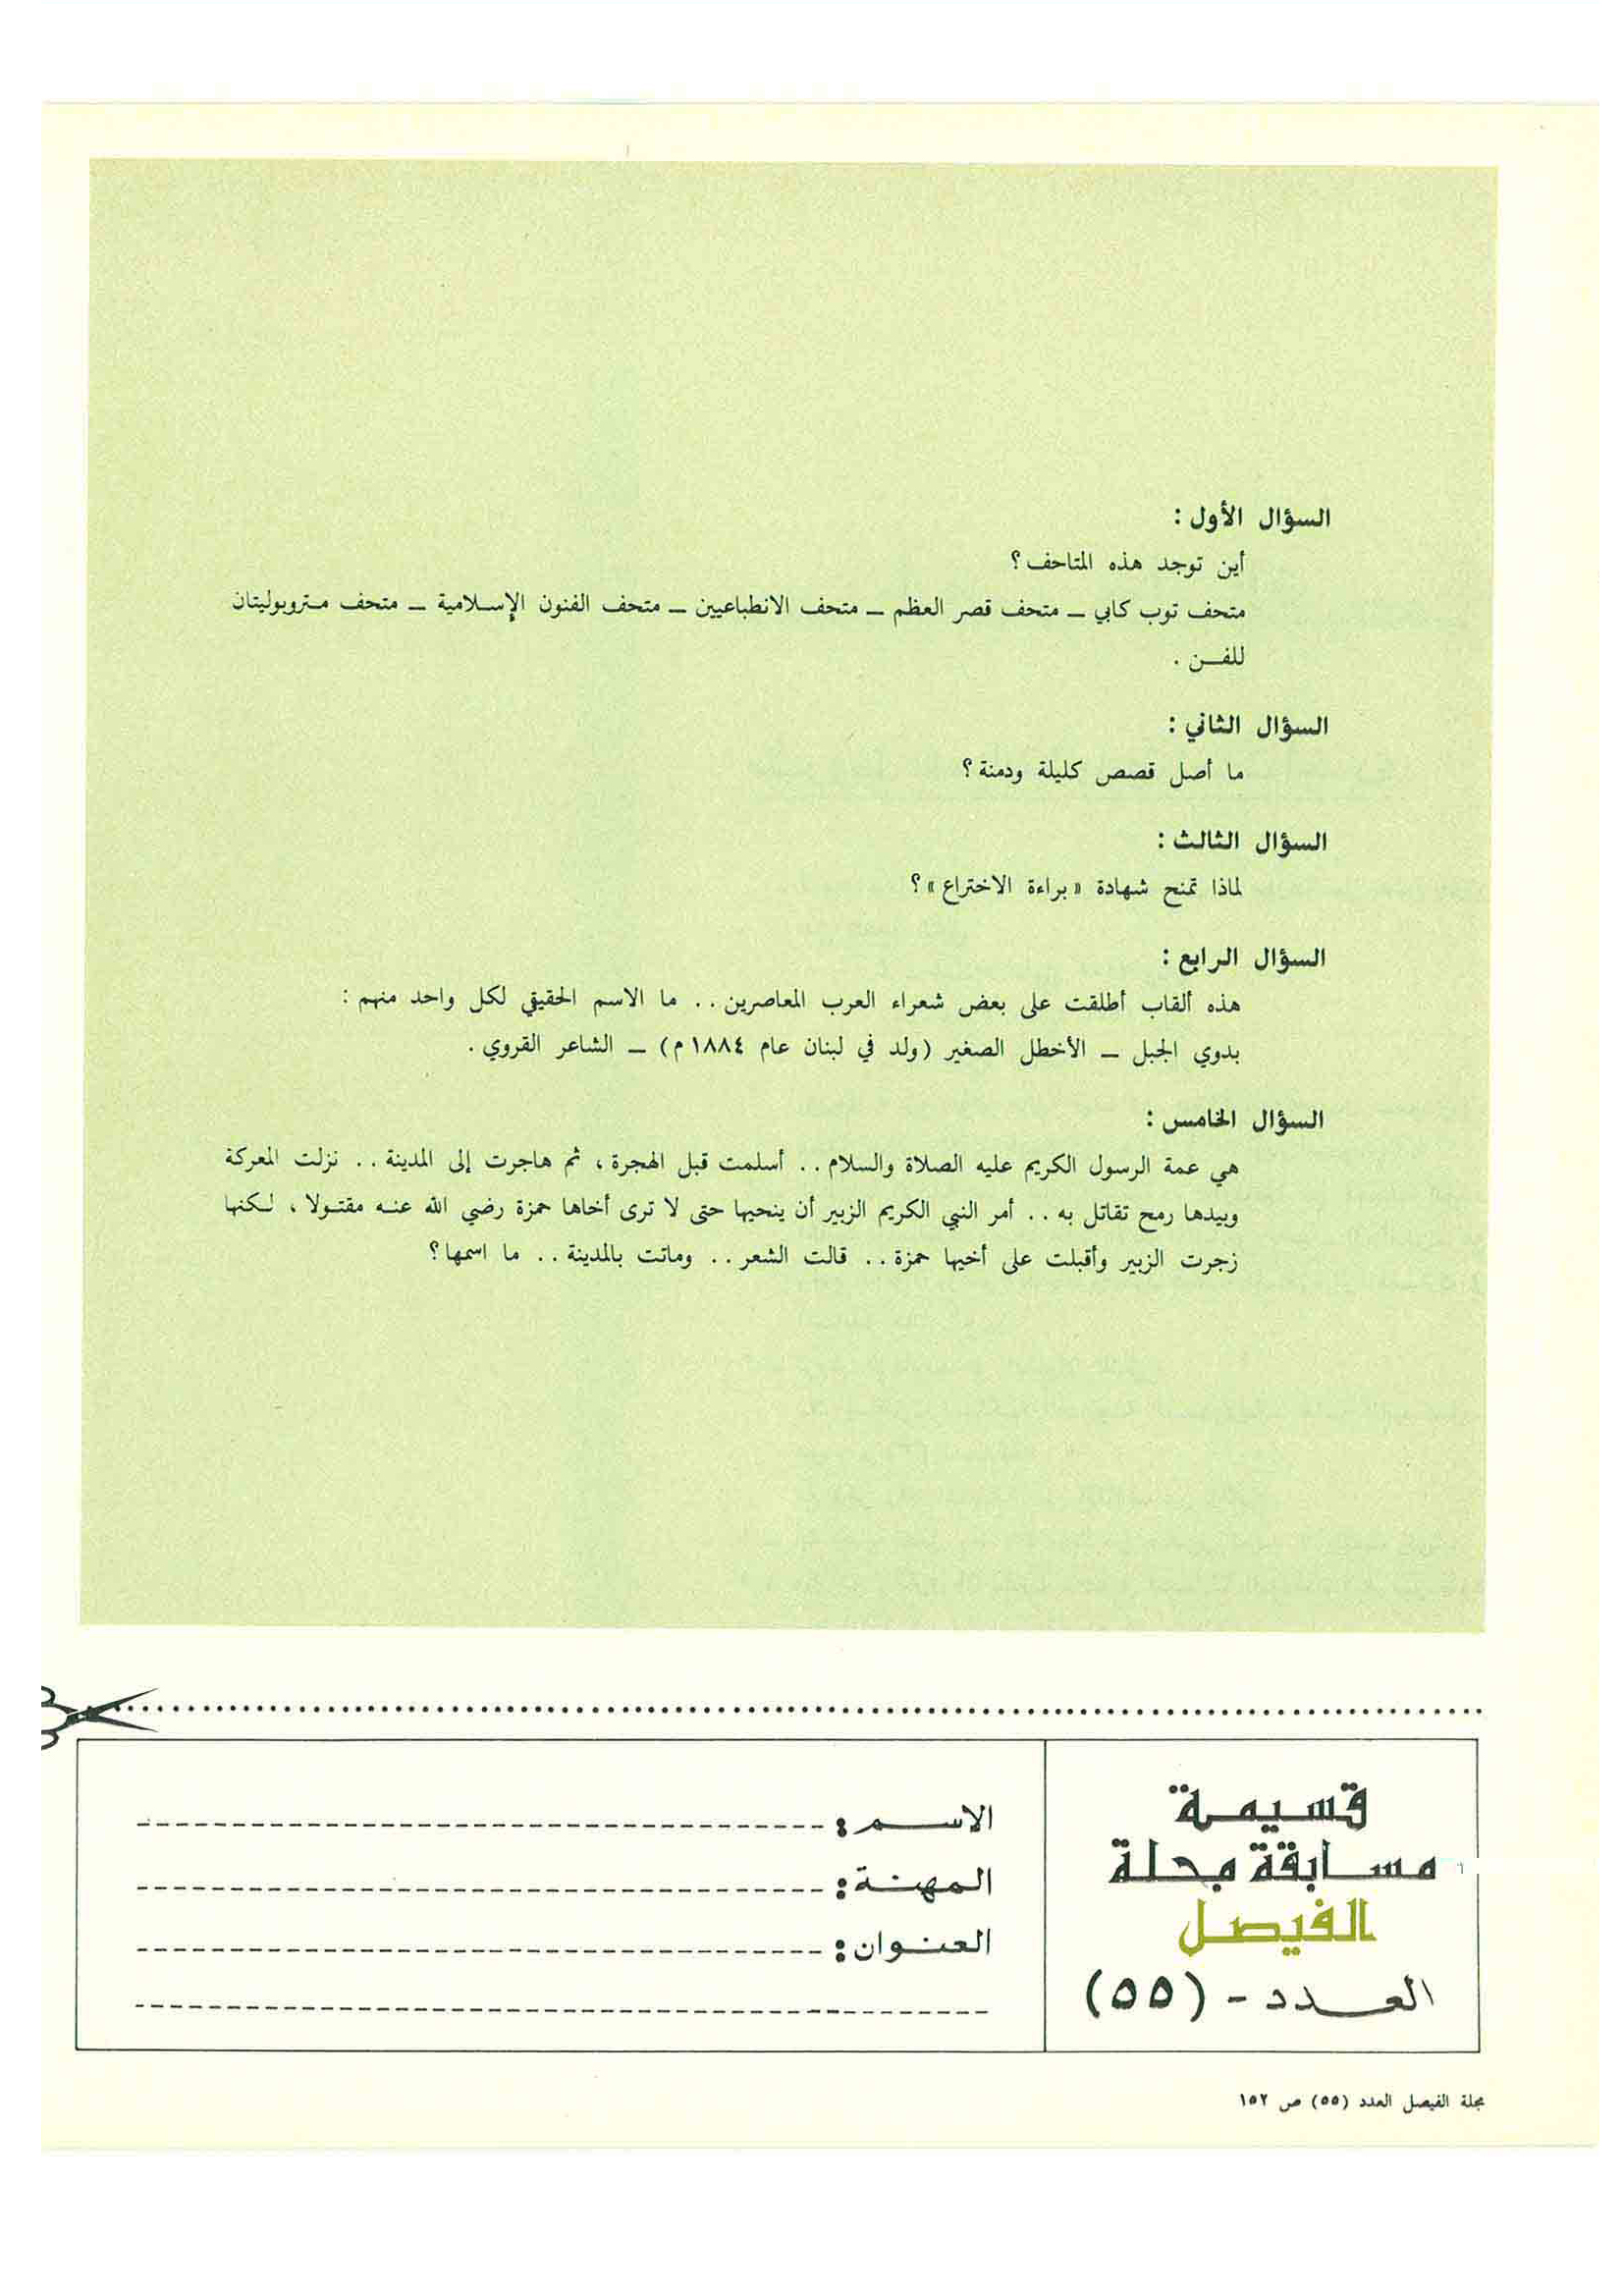 السؤال الأول :
أين توجد هذه المتاحف؟
متحف توب كابي ـ متحف قصر العظم ـ متحف الانطباعيين ـ متحف الفنون الإسلامية ـ متحف متروبوليتان
للفن .
السؤال الثاني :
ما أصل قصص كليلة ودمنة؟
السؤال الثالث :
لماذا تمنح شهادة «براءة الاختراع»؟
السؤال الرابع :
هذه ألقاب أطلقت على بعض شعراء العرب المعاصرين .. ما الاسم الحقيقي لكل واحد منهم :
بدوي الجبل ـ الأخطل الصغير (ولد في لبنان عام ١٨٨٤م) ـ الشاعر القروي .
السؤال الخامس :
هي عمة الرسول الكريم عليه الصلاة والسلام .. أسلمت قبل الهجرة ، ثم هاجرت إلى المدينة .. نزلت المعركة
وبيدها رمح تقاتل به .. أمر النبي الكريم الزبير أن ينحيها حتى لا ترى أخاها حمزة رضي الله عنه مقتولا ، لكنها
زجرت الزبير وأقبلت على أخيها حمزة .. قالت الشعر .. وماتت بالمدينة .. ما اسمها؟
قسيمة
مسابقة مجلة
الفيصل
العدد - (٥٥)
الاسم :
المهنة :
العنوان :
مجلة الفيصل العدد (٥٥) ص ١٥٢